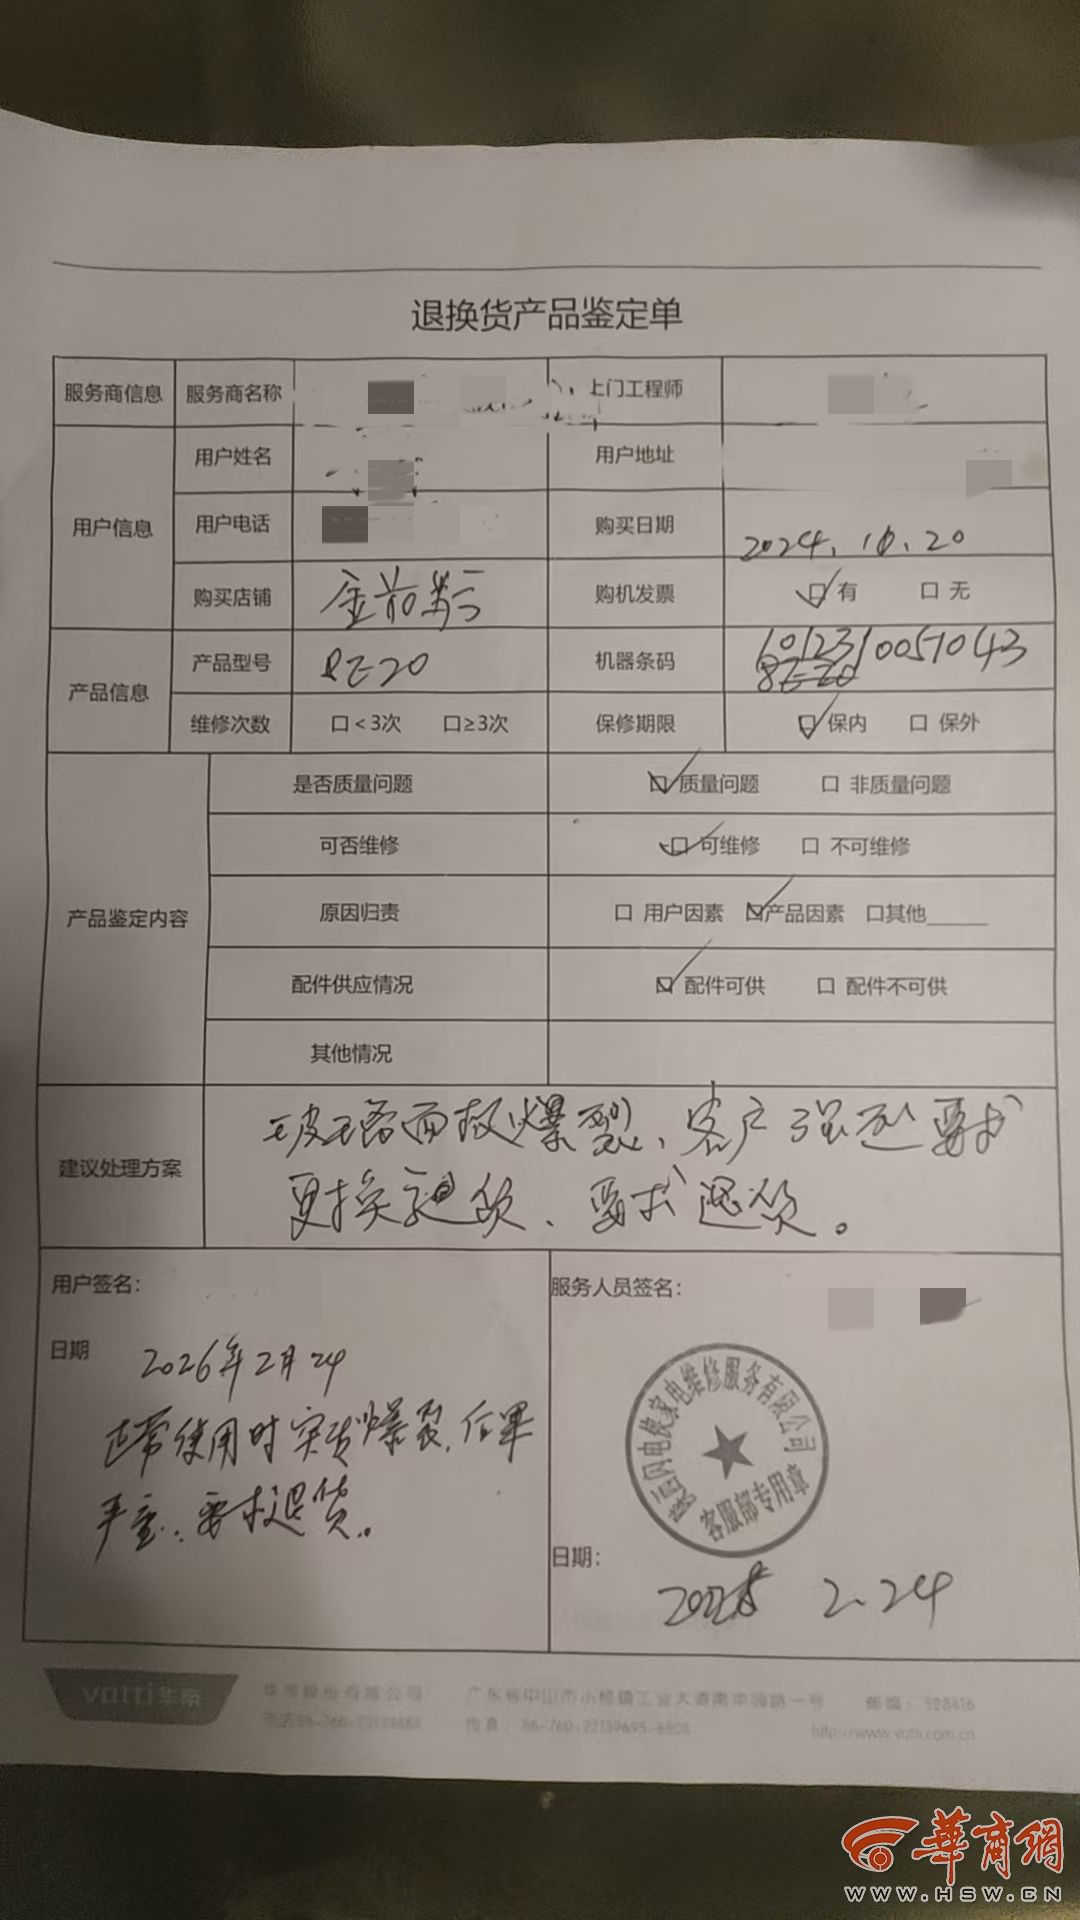 退换货产品鉴定单
服务商信息 服务商名称 上门工程师
用户信息 用户姓名 用户地址
用户电话 购买日期 2024.10.20
购买店铺 购机发票 ☑有 口 无
产品信息 产品型号 8Z20 机器条码 1012310051043
维修次数 口<3次 口≥3次 保修期限 ☑保内 口 保外
产品鉴定内容 是否质量问题 ☑质量问题 口 非质量问题
可否维修 ☑可维修 口 不可维修
原因归责 口 用户因素 ☑产品因素 口其他
配件供应情况 ☑ 配件可供 口 配件不可供
其他情况
建议处理方案 玻璃面板爆裂、客户强烈要求
更换退货、要求退货。
用户签名: 服务人员签名:
日期 2026年2月24
正常使用时突发爆裂,后果
严重,要求退货。
闪电侠家电维修服务有限公司
客服部专用章
日期: 2.24
vatti华帝 华帝股份有限公司 广东省中山市小榄镇工业大道南华园路一号 邮编: 528416
电话:86-760-22139888 传真: 86-760-22139695-8808 http://www.vatti.com.cn
華商網
WWW.HSW.CN